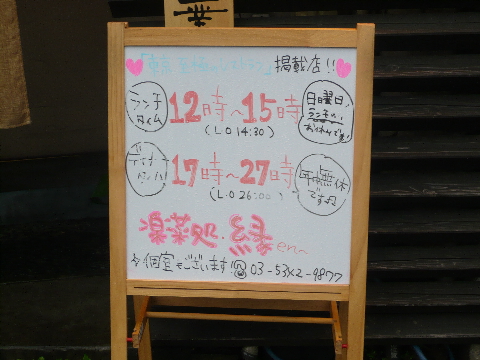 掲載店!!
ランチ
タイム
12時〜15時
(L.O 14:30)
日曜日
ランチは
お休みです
ディナー
タイム
17時〜27時
(L.O 26:00)
年中無休
です♪
楽菜処・縁en〜
☆個室もございます!
03-5342-9877